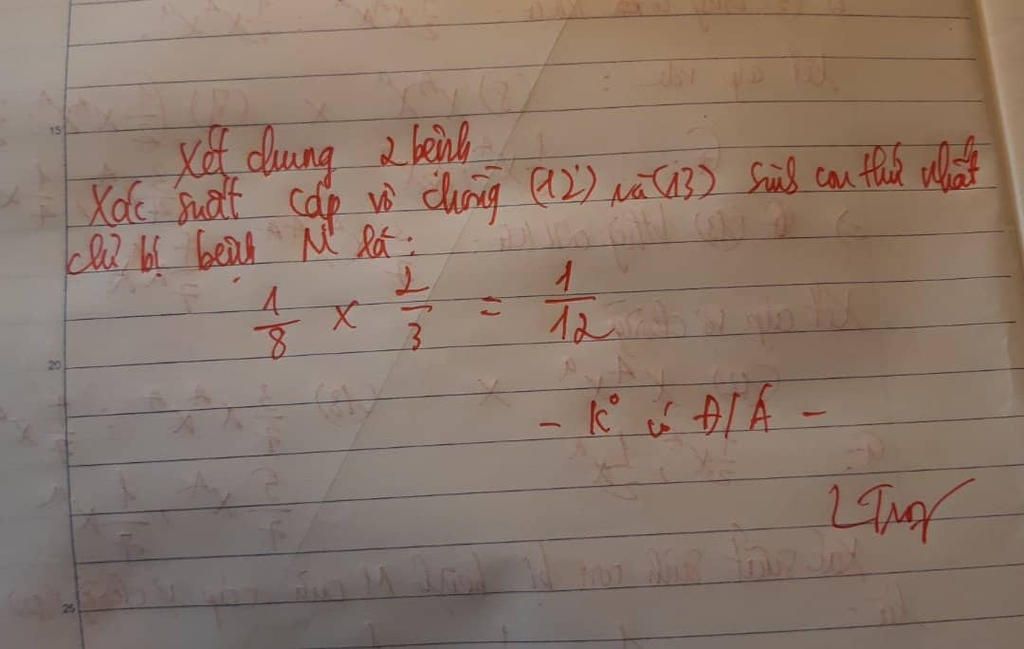 15
Xét chung 2 bệnh
Xác suất cặp vợ chồng (12) và (13) sinh con thứ nhất
chỉ bị bệnh M là:
1/8 x 2/3 = 1/12
20
- K° có Đ/A -
25